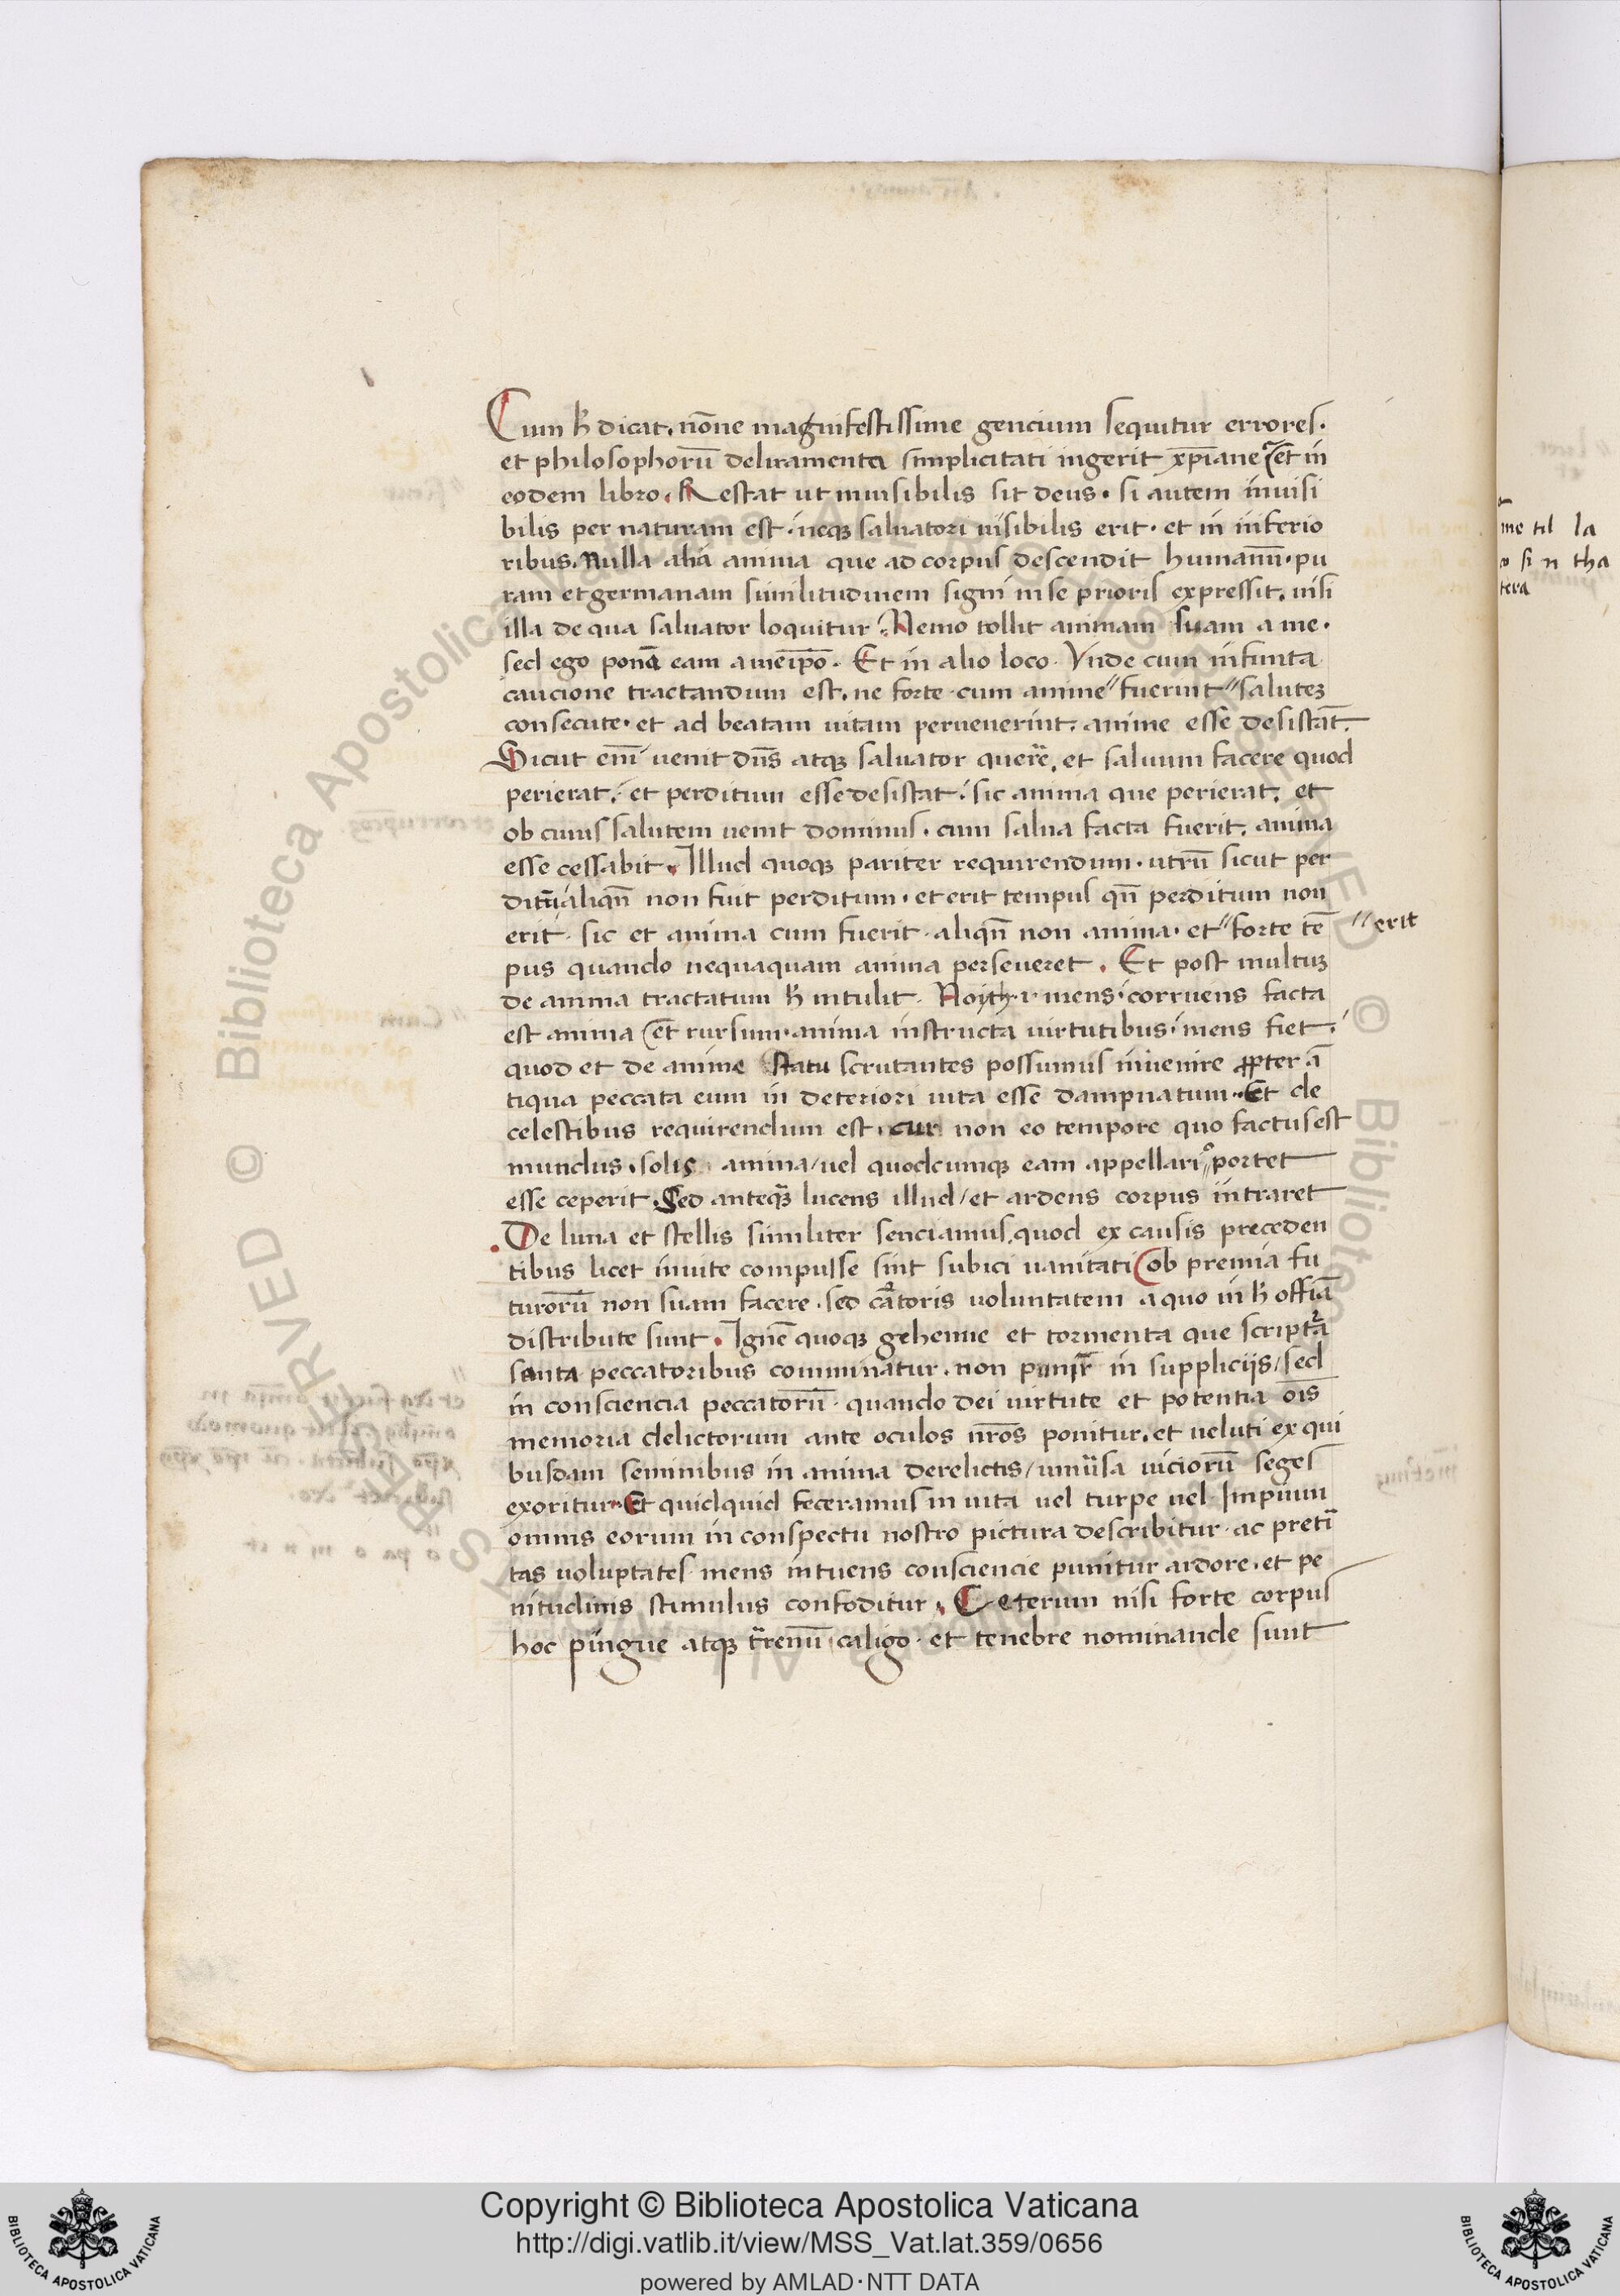 Cum h̄ dicat. nōne magnifestissime gencium sequitur errores.
et philosophorū deliramenta simplicitati ingerit xp̄iane et in
eodem libro. Restat ut inuisibilis sit deus. si autem inuisi
bilis per naturam est. neqꝫ saluatori uisibilis erit. et in inferio
ribus. Nulla alia anima que ad corpus descendit humanū. pu
ram et germanam similitudinem signi in se prioris expressit. nisi
illa de qua saluator loquitur. Nemo tollit animam suam a me.
sed ego ponā eam a meip̄o. Et in alio loco. Vnde cum infinita
caucione tractandum est. ne forte cum anime "fuerint" saluteꝫ
consecute. et ad beatam uitam peruenerint. anime esse desistāt.
Sicut enī uenit dn̄s atqꝫ saluator querē. et saluum facere quod
perierat. et perditum esse desistat. sic anima que perierat. et
ob cuius salutem uenit dominus. cum salua facta fuerit. anima
esse cessabit. Illud quoqꝫ pariter requirendum. utrū sicut per
ditū aliqn̄ non fuit perditum. et erit tempus qn̄ perditum non
erit. sic et anima cum fuerit aliqn̄ non anima. et "forte tē "erit
pus quando nequaquam anima perseueret. Et post multuꝫ
de anima tractatum h̄ intulit. Noith .i. mens. corruens facta
est anima et rursum. anima instructa uirtutibus. mens fiet.
quod et de anime statu scrutantes possumus inuenire ꝓpter ā
tiqua peccata eum in deteriori uita esse dampnatum. Et de
celestibus requirendum est. cur non eo tempore quo factus est
mundus. solis anima/uel quodcumqꝫ eam appellari oportet
esse ceperit. Sed anteqꝫ lucens illud/et ardens corpus intraret
De luna et stellis similiter senciamus. quod ex causis preceden
tibus licet inuite compulse sint subici uanitati ob premia fu
turorū non suam facere. sed c̄atoris voluntatem a quo in h̄ offīa
distribute sunt. Ignē quoqꝫ gehenne et tormenta que script̄a
santa peccatoribus comminatur. non punir̄ in supplicijs/sed
in consciencia peccatorū. quando dei uirtute et potentia ois̄
memoria delictorum ante oculos nr̄os ponitur. et ueluti ex qui
busdam seminibus in anima derelictis/uniūsa uiciorū seges
exoritur. Et quidquid feceramus in uita uel turpe uel Impium
omnis eorum in conspectu nostro pictura describitur. ac pretī
tas uoluptates mens intuens consciencie punitur ardore. et pe
nitudinis stimulus confoditur. Ceterum nisi forte corpus
hoc pingue atqꝫ t̄renū caligo. et tenebre nominande sunt
me til la
o si n tha
tera
Copyright © Biblioteca Apostolica Vaticana
http://digi.vatlib.it/view/MSS_Vat.lat.359/0656
powered by AMLAD·NTT DATA
BIBLIOTECA APOSTOLICA VATICANA
BIBLIOTECA APOSTOLICA VATICANA